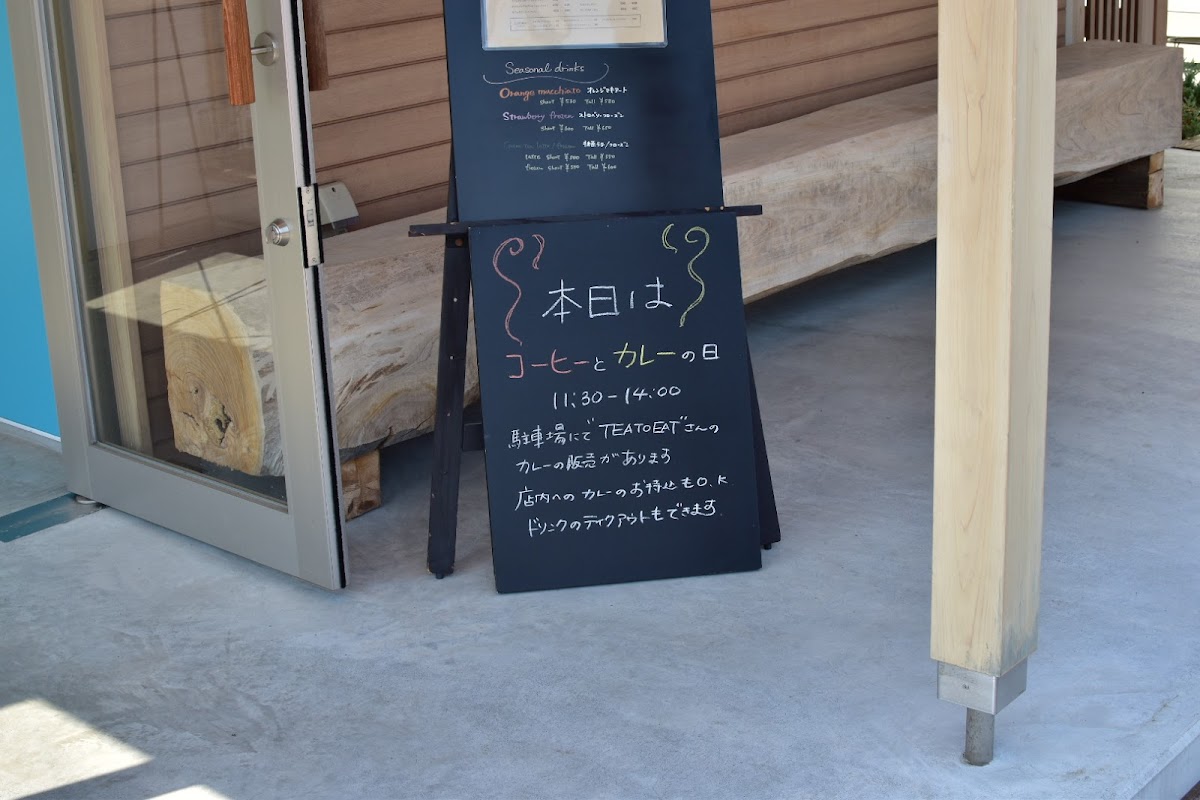 Seasonal drinks
Orange macchiato オレンジマキアート
short ¥530 Tall ¥580
Strawberry frozen ストロベリーフローズン
short ¥600 Tall ¥650
latte short ¥500 Tall ¥550
frozen short ¥550 Tall ¥600
本日は
コーヒーとカレーの日
11:30-14:00
駐車場にて"TEATOEAT"さんの
カレーの販売があります
店内へのカレーのお持込もO.K
ドリンクのテイクアウトもできます